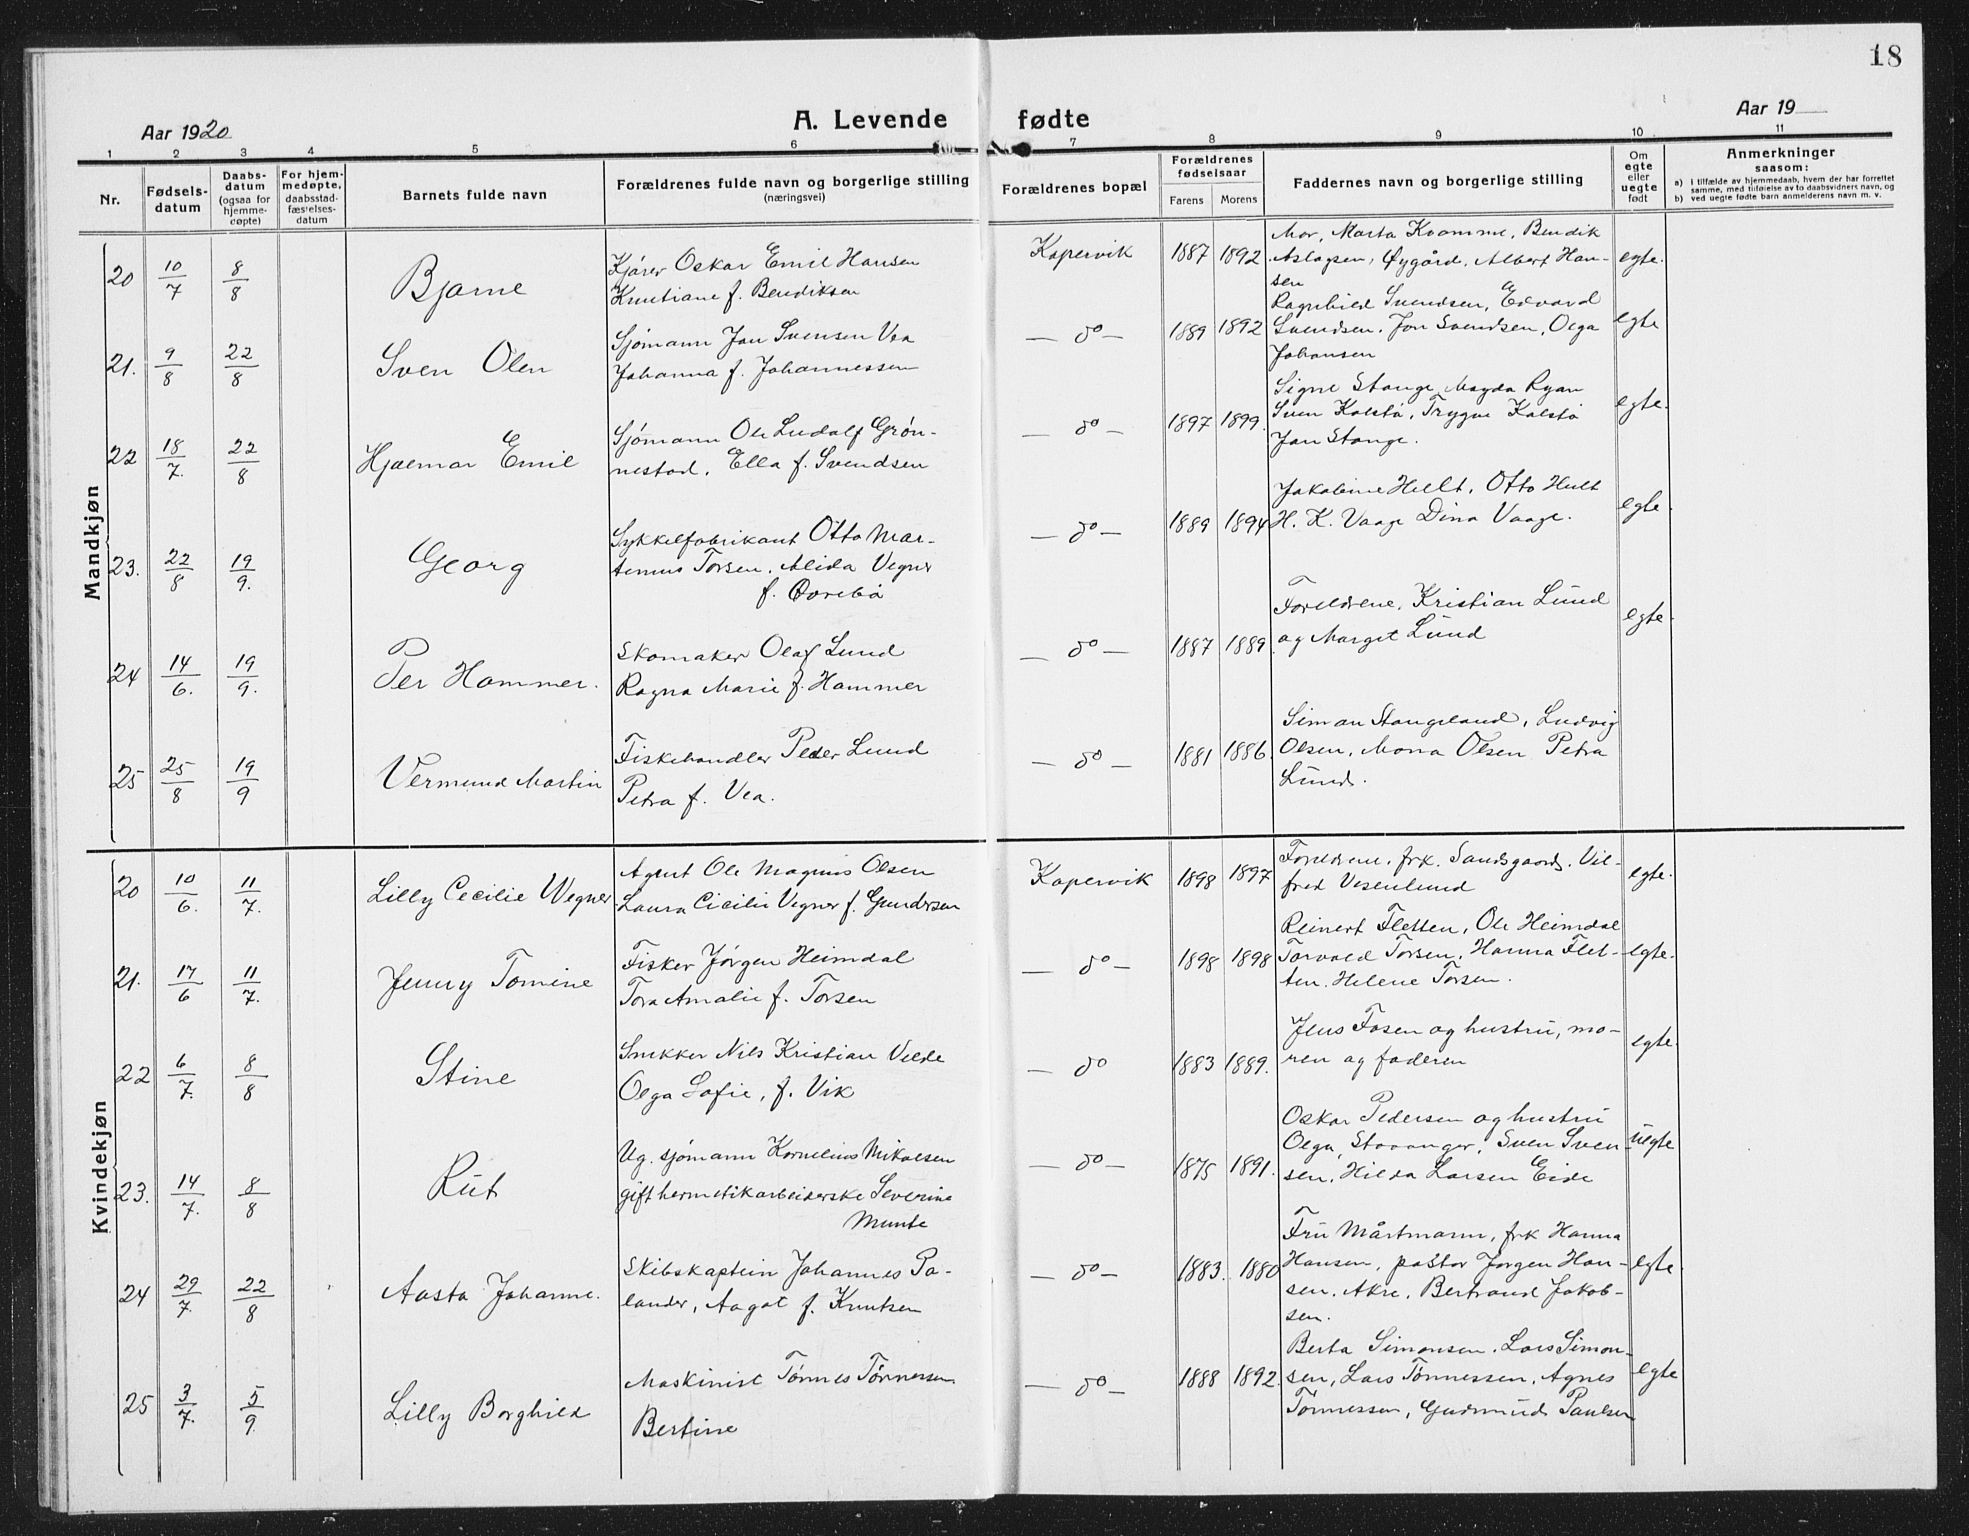 18
Aar 1920
A. Levende fødte
Aar 19
1 2 3 4 5 6 7 8 9 10 11
Nr.
Fødselsdatum
Daabsdatum (ogsaa for hjemmedøpte)
For hjemmedøpte, daabsstadfæstelsesdatum
Barnets fulde navn
Forældrenes fulde navn og borgerlige stilling
(næringsvei)
Forældrenes bopæl
Forældrenes fødselsaar
Farens Morens
Faddernes navn og borgerlige stilling
Om egte eller uegte født
Anmerkninger
saasom:
a) i tilfælde av hjemmedaab, hvem der har forrettet
samme, med tilføielse av to daabsvidners navn, og
b) ved uegte fødte barn anmelderens navn m. v.
Mandkjøn
20 10/7 8/8 Bjarne
Kjører Oskar Emil Hansen
f. Bendiksen
Kopervik 1887 1892
Mor, Marta Kvamme, Bendik
Aslagsen, Øygård, Albert Han-
sen
egte.
21. 9/8 22/8 Sven Olen
Sjømann Jan Svensen Vea
Johanna f. Johannessen
— do — 1889 1892
Ragnhild Svendsen, Edvard
Svendsen, Jon Svendsen, Olga
Johansen
egte
22 18/7. 22/8 Hjalmar Emil
Sjømann Ole Ludolf Grøn-
nestad, Ella f. Svendsen
— do — 1897 1899.
Signe Stange, Magda Ryan
Sven Kolstø, Trygve Kolstø
Jan Stange.
egte.
23. 22/8 19/9. Georg
Sykkelfabrikant Otto Mar-
tinius Torsen, Alida Vegner
f. Øvrebø
— do — 1889 1894
Jakobine Hult, Otto Hult
H. K. Vaage Dina Vaage.
egte.
24 14/6. 19/9. Per Hammer.
Skomaker Olaf Lund
Ragna Marie f. Hammer
— do — 1887 1889
Foreldrene, Kristian Lund
og Marget Lund
egte.
25 25/8 19/9 Vermund Martin
Fiskehandler Peder Lund
Petra f. Vea.
— do — 1881 1886.
Simon Stangeland, Ludvig
Olsen, Mona Olsen Petra
Lund.
Kvindekjøn
20 10/6. 11/7. Lilly Cecilie Wegner
Agent Ole Magnus Olsen
Laura Cicilie Vegner f. Gundersen
Kopervik 1898 1897
Foreldrene, frk. Sandsgaard, Vil-
fred Vesenlund
egte.
21. 17/6 11/7. Jenny Tomine
Fisker Jørgen Heimdal
Tora Amalie f. Torsen
— do — 1898 1898
Reinert Fletten, Ole Heimdal
Torvald Torsen, Hanna Flet-
ten, Helene Torsen.
egte.
22 6/7. 8/8 Stine
Snekker Nils Kristian Velde
Olga Sofie, f. Vik
— do 1883 1889.
Jens Fosen og hustru, mo-
ren og faderen
egte.
23. 14/7. 8/8 Rut
Ug. sjømann Kornelius Mikalsen
gift hermetikarbeiderske Severine
Munte
— do — 1875 1891.
Oskar Pedersen og hustru
Olga, Stavanger, Sven Sven-
sen, Hilda Larsen Eide
uegte
24 29/7. 22/8 Aasta Johanne.
Skibskaptein Johannes Pa-
lander, Aagot f. Knutsen
— do — 1883. 1880
Fru Mårtmann, frk Hanna
Hansen, pastor Jørgen Han-
sen, Akre, Bertrand Jakob-
sen.
egte
25 3/7. 5/9. Lilly Borghild
Maskinist Tønnes Tønnessen
Bertine
— do — 1888 1892.
Berta Simonsen, Lars Simon-
sen, Lars Tønnessen, Agnes
Tønnessen, Gudmund Paulsen
egte